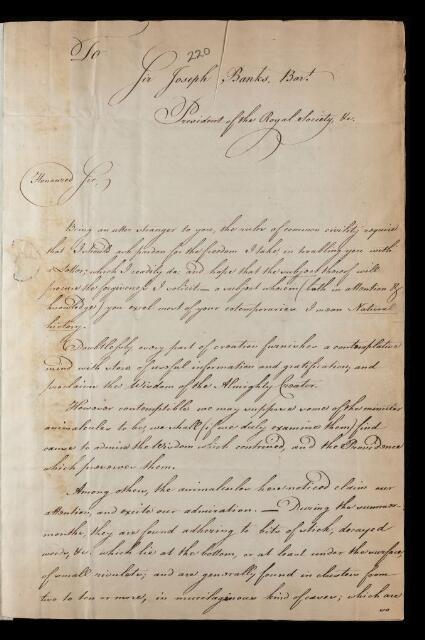 220
To
Sir Joseph Banks, Bart.
President of the Royal Society, &c.
Honoured Sir,
Being an utter stranger to you, the rules of common civility require
that I should ask pardon for the freedom I take in troubling you with
a Letter; which I readily do: and hope that the subject thereof will
procure the forgiveness I solicit — a subject wherein (both in attention &
knowledge) you excel most of your cotemporaries. I mean Natural
history.
Doubtlessly every part of creation furnishes a contemplative
mind with store of useful information and gratification, and
proclaim the Wisdom of the Almighty Creator.
However contemptible we may suppose some of the minuter
animalculæ to be, we shall (if we duly examine them) find
cause to admire the Wisdom which contrived, and the Providence
which preserves them.
Among others, the animalculæ here noticed claim our
attention, and excite our admiration. — During the summer
months, they are found adhering to bits of stick, decayed
weeds, &c. which lie at the bottom, or at least under the surface,
of small rivulets; and are generally found in clusters from
two to ten or more, in mucilaginous kind of cases; which are
so